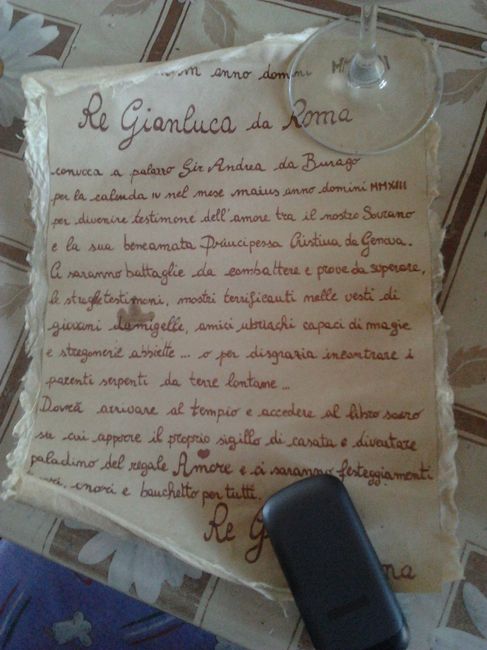 anno domini
Re Gianluca da Roma
convoca a palazzo Sir Andrea da Burago
per la calenda IV nel mese maius anno domini MMXIII
per divenire testimone dell'amore tra il nostro Sovrano
e la sua beneamata Principessa Cristina da Genova.
Ci saranno battaglie da combattere e prove da superare,
le streghe testimoni, mostri terrificanti nelle vesti di
giovani damigelle, amici ubriachi capaci di magie
e stregonerie abbiette ... o per disgrazia incontrare i
parenti serpenti da terre lontane ...
Dovrà arrivare al tempio e accedere al libro sacro
su cui apporre il proprio sigillo di casata e diventare
paladino del regale Amore e ci saranno festeggiamenti
onori e banchetto per tutti.
Re G